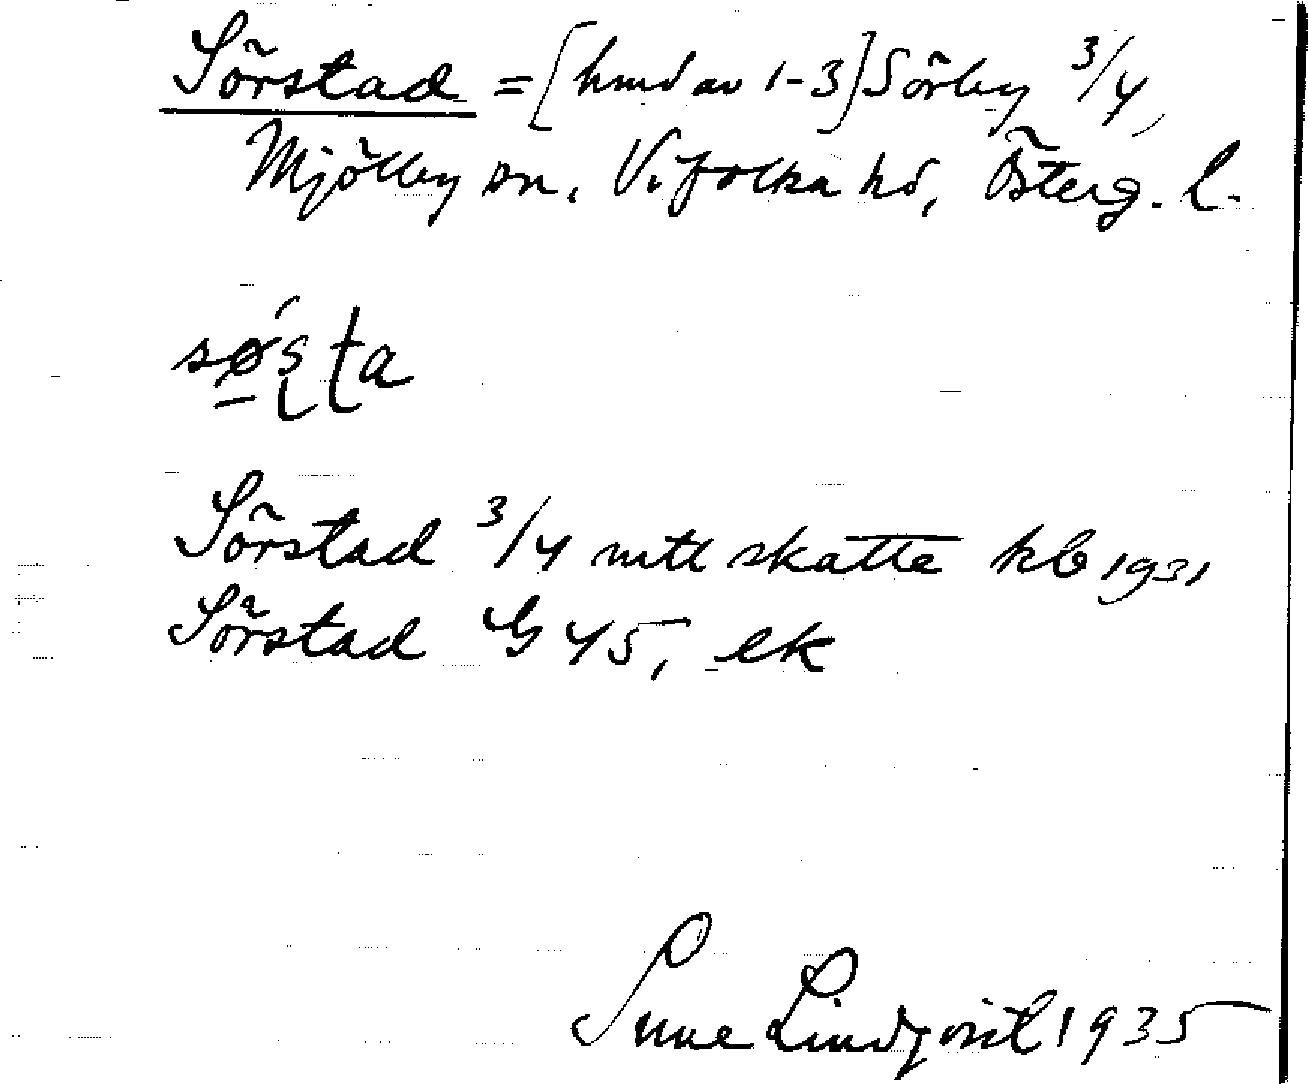 Sörstad = [hmd av 1-3] Sörby 3/4,
Mjölby sn. Vifolka hd, Österg. l.
sǿ̱ʂʈa
Sörstad 3/4 mtl skatte kb 1931
Sörstad G 45, ek
Sune Lindqvist 1935